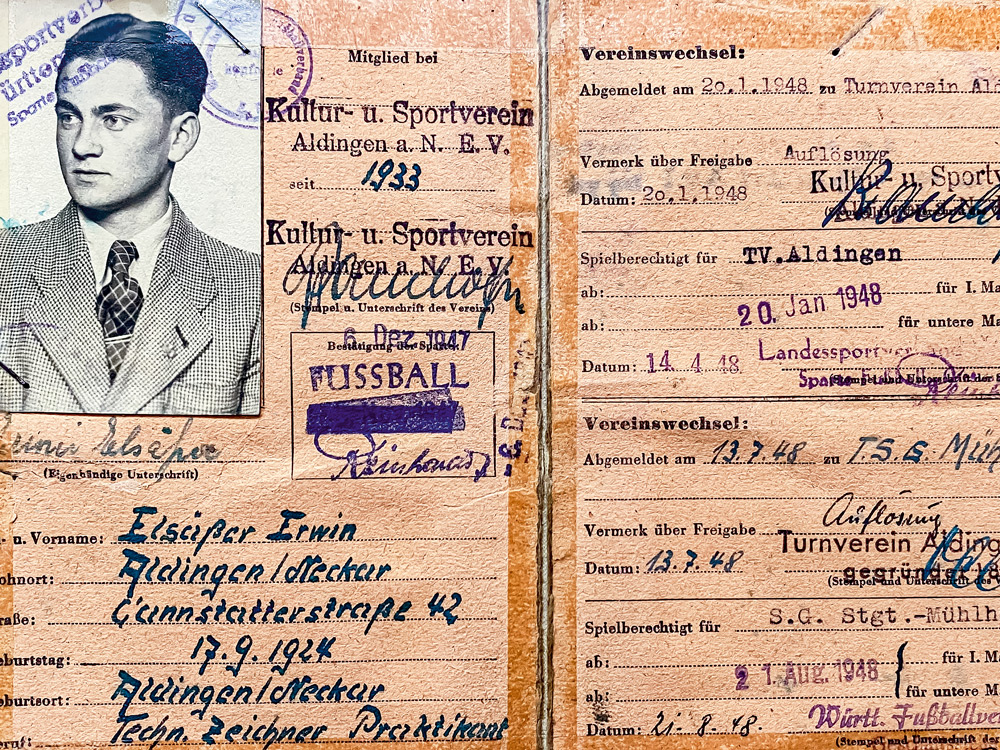 Mitglied bei
Kultur- u. Sportverein
Aldingen a. N. E. V.
seit 1933
Kultur- u. Sportverein
Aldingen a. N. E. V.
(Stempel u. Unterschrift des Vereins)
6. Dez. 1947
Bestätigung der Sparte:
FUSSBALL
Elsäßer
(Eigenhändige Unterschrift)
u. Vorname: Elsäßer Erwin
ohnort: Aldingen/Neckar
raße: Cannstatterstraße 42
eburtstag: 17.9.1924
eburtsort: Aldingen/Neckar
Techn. Zeichner Praktikant
Vereinswechsel:
Abgemeldet am 20.1.1948 zu Turnverein Ald
Vermerk über Freigabe Auflösung
Kultur- u. Sportv
Datum: 20.1.1948
Spielberechtigt für TV.Aldingen
ab: für I. Ma
20. Jan 1948
ab: für untere Ma
Datum: 14. 4. 48 Landessportver
Vereinswechsel:
Abgemeldet am 13.7.48 zu T.S.G. Müh
Vermerk über Freigabe Auflösung
Turnverein Alding
Datum: 13.7.48 gegründet
(Stempel und Unterschrift des
Spielberechtigt für S.G. Stgt.-Mühlh
ab: für I. Ma
21. Aug. 1948
ab: für untere Ma
Datum: 21.8.48. Württ. Fußballve
(Stempel und Unterschrift der